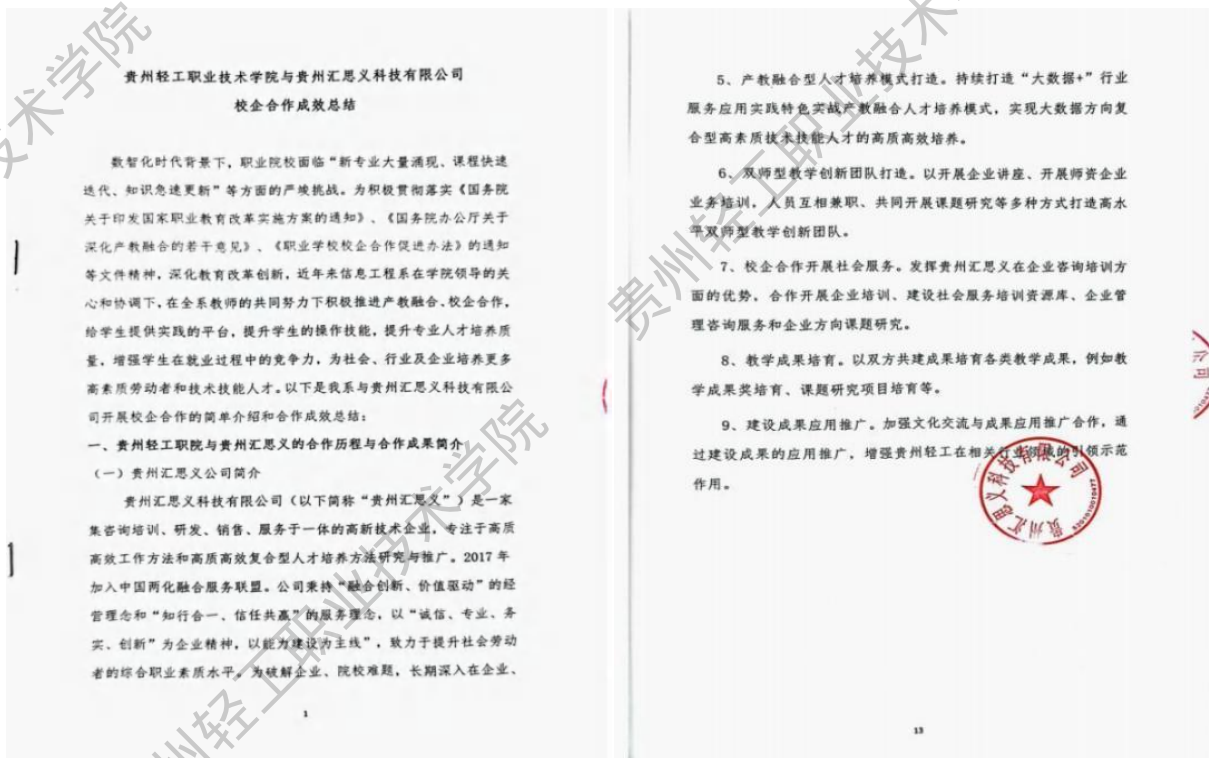 贵州轻工职业技术学院与贵州汇思义科技有限公司
校企合作成效总结
数智化时代背景下，职业院校面临“新专业大量涌现、课程快速
迭代、知识急速更新”等方面的严峻挑战。为积极贯彻落实《国务院
关于印发国家职业教育改革实施方案的通知》、《国务院办公厅关于
深化产教融合的若干意见》、《职业学校校企合作促进办法》的通知
等文件精神，深化教育改革创新，近年来信息工程系在学院领导的关
心和协调下，在全系教师的共同努力下积极推进产教融合、校企合作，
给学生提供实践的平台，提升学生的操作技能，提升专业人才培养质
量，增强学生在就业过程中的竞争力，为社会、行业及企业培养更多
高素质劳动者和技术技能人才。以下是我系与贵州汇思义科技有限公
司开展校企合作的简单介绍和合作成效总结：
一、贵州轻工职院与贵州汇思义的合作历程与合作成果简介
（一）贵州汇思义公司简介
贵州汇思义科技有限公司（以下简称“贵州汇思义”）是一家
集咨询培训、研发、销售、服务于一体的高新技术企业，专注于高质
高效工作方法和高质高效复合型人才培养方法研究与推广。2017 年
加入中国两化融合服务联盟。公司秉持“融合创新、价值驱动”的经
营理念和“知行合一、信任共赢”的服务理念，以“诚信、专业、务
实、创新”为企业精神，以能力建设为主线”，致力于提升社会劳动
者的综合职业素质水平。为破解企业、院校难题，长期深入在企业、
1
5、产教融合型人才培养模式打造。持续打造“大数据+”行业
服务应用实践特色实战产教融合人才培养模式，实现大数据方向复
合型高素质技术技能人才的高质高效培养。
6、双师型教学创新团队打造。以开展企业讲座、开展师资企业
业务培训，人员互相兼职、共同开展课题研究等多种方式打造高水
平双师型教学创新团队。
7、校企合作开展社会服务。发挥贵州汇思义在企业咨询培训方
面的优势，合作开展企业培训、建设社会服务培训资源库、企业管
理咨询服务和企业方向课题研究。
8、教学成果培育。以双方共建成果培育各类教学成果，例如教
学成果奖培育、课题研究项目培育等。
9、建设成果应用推广。加强文化交流与成果应用推广合作，通
过建设成果的应用推广，增强贵州轻工在相关行业领域的引领示范
作用。
贵州汇思义科技有限公司
13
贵州轻工职业技术学院
贵州轻工职业技术